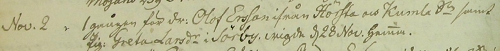 Nov. 2 " Lysningen för dr: Olof Ersson ifrån Höfsta uti Kumla Sn samt
Pig. Greta Larsdr i Sörby, wigde d 28 Nov. hemma.